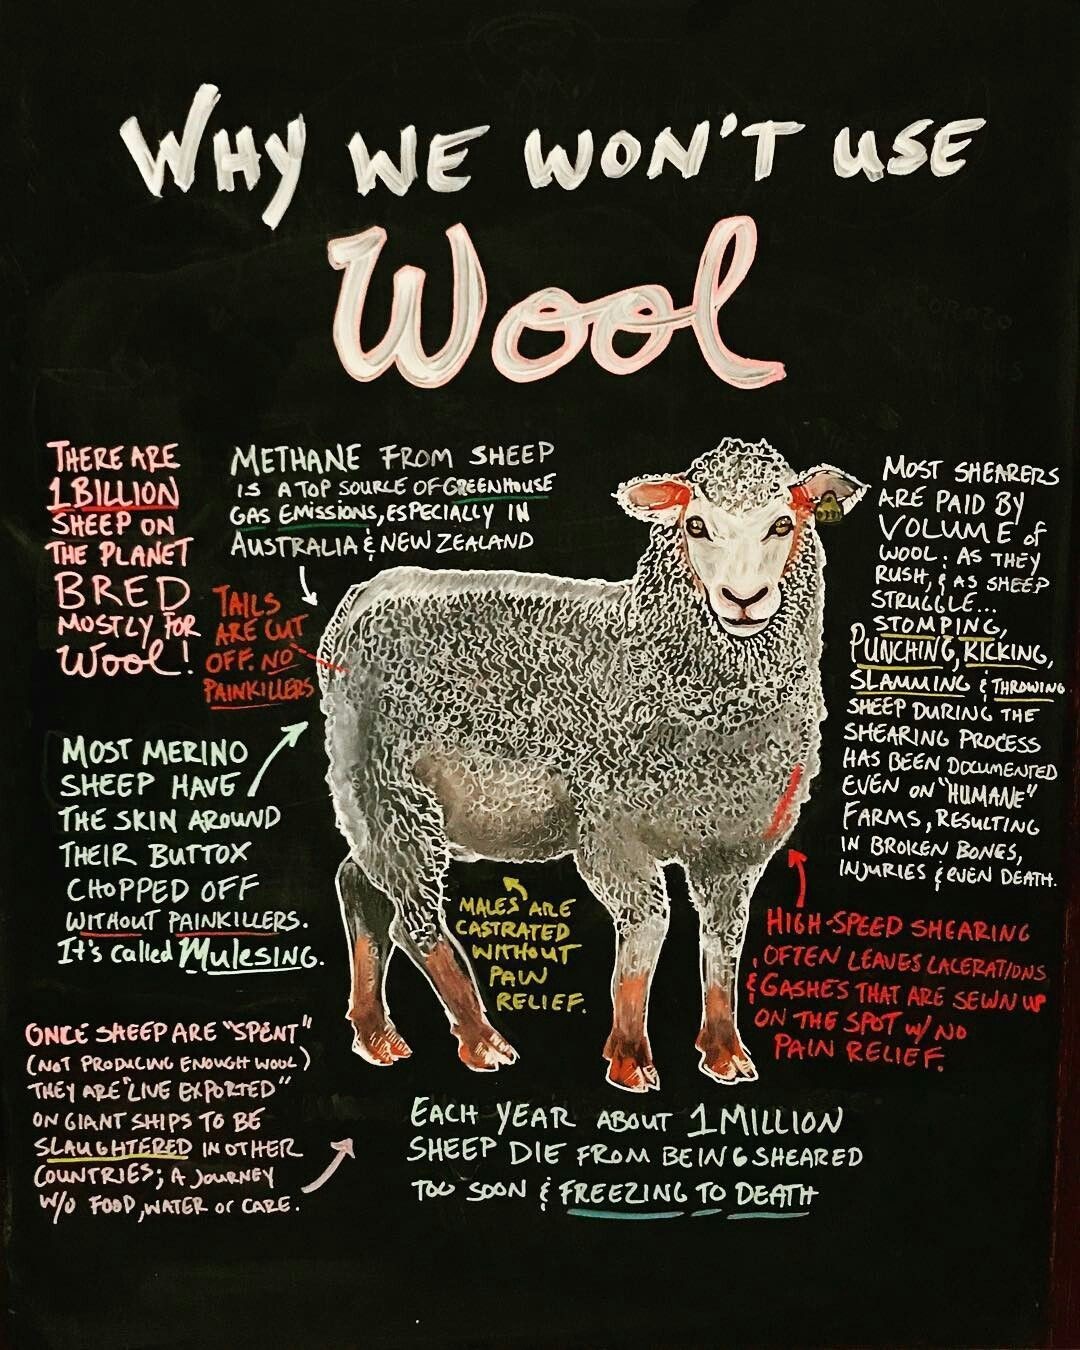 WHY WE WON'T USE
Wool
THERE ARE
1 BILLION
SHEEP ON
THE PLANET
BRED
MOSTLY FOR
Wool!
METHANE FROM SHEEP
IS A TOP SOURCE OF GREENHOUSE
GAS EMISSIONS, ESPECIALLY IN
AUSTRALIA & NEW ZEALAND
TAILS
ARE CUT
OFF. NO
PAINKILLERS
MOST SHEARERS
ARE PAID BY
VOLUME of
WOOL: AS THEY
RUSH, & AS SHEEP
STRUGGLE...
STOMPING,
PUNCHING, KICKING,
SLAMMING & THROWING
SHEEP DURING THE
SHEARING PROCESS
HAS BEEN DOCUMENTED
EVEN ON "HUMANE"
FARMS, RESULTING
IN BROKEN BONES,
INJURIES & EVEN DEATH.
MOST MERINO
SHEEP HAVE
THE SKIN AROUND
THEIR BUTTOX
CHOPPED OFF
WITHOUT PAINKILLERS.
It's called MulesING.
MALES ARE
CASTRATED
WITHOUT
PAIN
RELIEF.
HIGH-SPEED SHEARING
OFTEN LEAVES LACERATIONS
& GASHES THAT ARE SEWN UP
ON THE SPOT w/ NO
PAIN RELIEF.
ONCE SHEEP ARE "SPENT"
(NOT PRODUCING ENOUGH WOOL)
THEY ARE "LIVE EXPORTED"
ON GIANT SHIPS TO BE
SLAUGHTERED IN OTHER
COUNTRIES; A JOURNEY
W/O FOOD, WATER or CARE.
EACH YEAR ABOUT 1 MILLION
SHEEP DIE FROM BEING SHEARED
TOO SOON & FREEZING TO DEATH